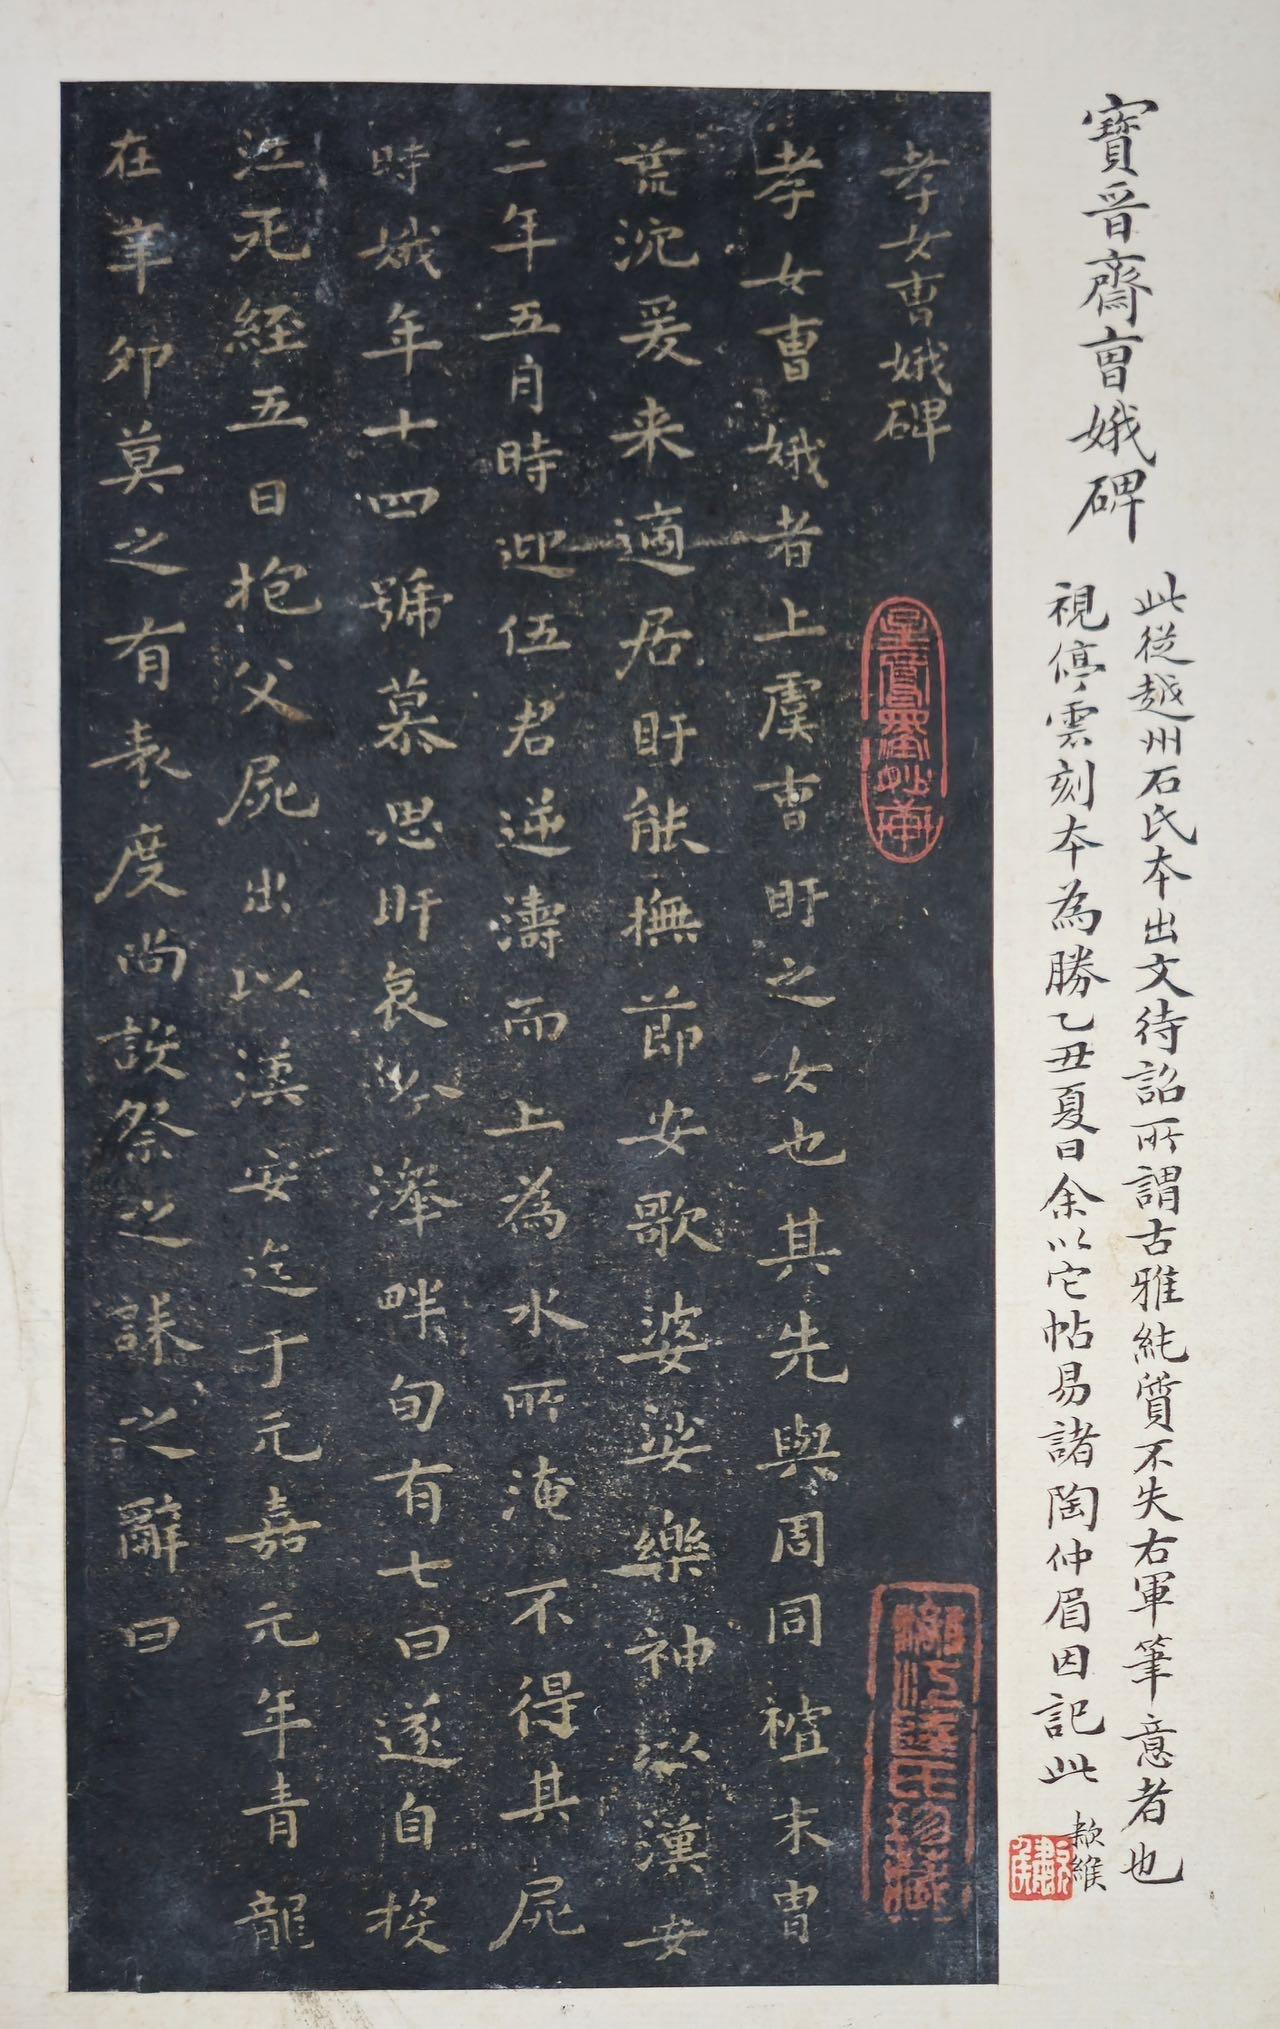 寶晉齋曹娥碑
此從越州石氏本出文待詔所謂古雅純質不失右軍筆意者也
視停雲刻本為勝乙丑夏日余以它帖易諸陶仲眉因記此
孝女曹娥碑
孝女曹娥者上虞曹盱之女也其先與周同祖末冑
荒沈爰来適居盱能撫節安歌婆娑樂神以漢安
二年五月時迎伍君逆濤而上為水所淹不得其屍
時娥年十四號慕思盱哀吟澤畔旬有七日遂自投
江死經五日抱父屍出以漢安迄于元嘉元年青龍
在辛卯莫之有表度尚設祭之誄之辭曰